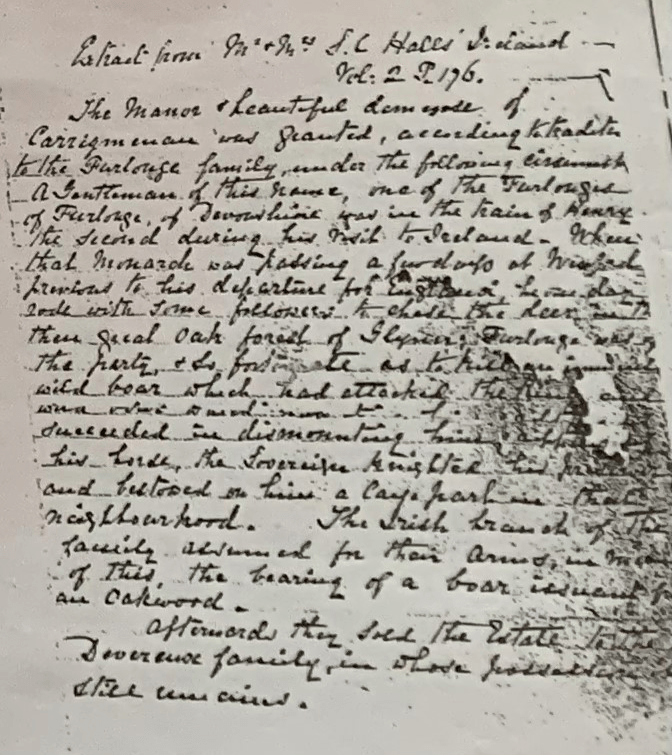 Extract from Mr & Mrs S. C Halls' Ireland —
Vol: 2 P. 196.
The Manor & beautiful demesne of
Carrigmenan was granted, according to tradit
to the Furlonge family, under the following circumst
A Gentleman of this name, one of the Furlonges
of Furlonge, of Devonshire was in the train of Henry
the Second during his visit to Ireland - When
that Monarch was passing a few days at Wexford
previous to his departure for England, he one day
rode with some followers to chase the deer in t
then great Oak forest of Glynn; Furlonge was
the party, & so fortunate as to kill an
wild boar which had attacked the King and
succeeded in dismounting him
his horse, the Sovereign Knighted his
and bestowed on him a large part in that
neighbourhood. The Irish branch of the
family assumed for their Arms, in
of this, the bearing of a boar issuant f
an Oakwood.
Afterwards they sold the Estate to the
Devereux family, in whose possession
still remains.